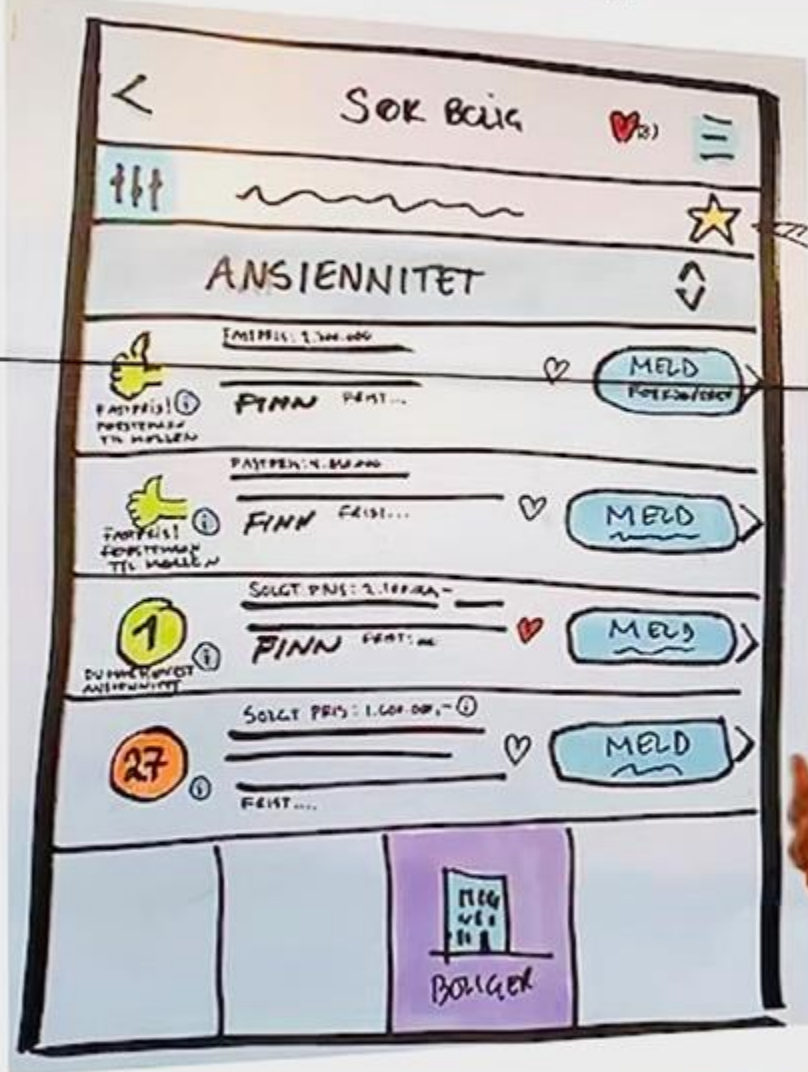 SØK BOLIG
ANSIENNITET
FASTPRIS:
FASTPRIS!
FØRSTEMANN
TIL MØLLEN
FINN FRIST...
MELD
FASTPRIS:
FASTPRIS!
FØRSTEMANN
TIL MØLLEN
FINN FRIST...
MELD
SOLGT PRIS:
1
FINN FRIST:
MELD
SOLGT PRIS: 1.600.000,-
27
FRIST....
MELD
BOLIGER